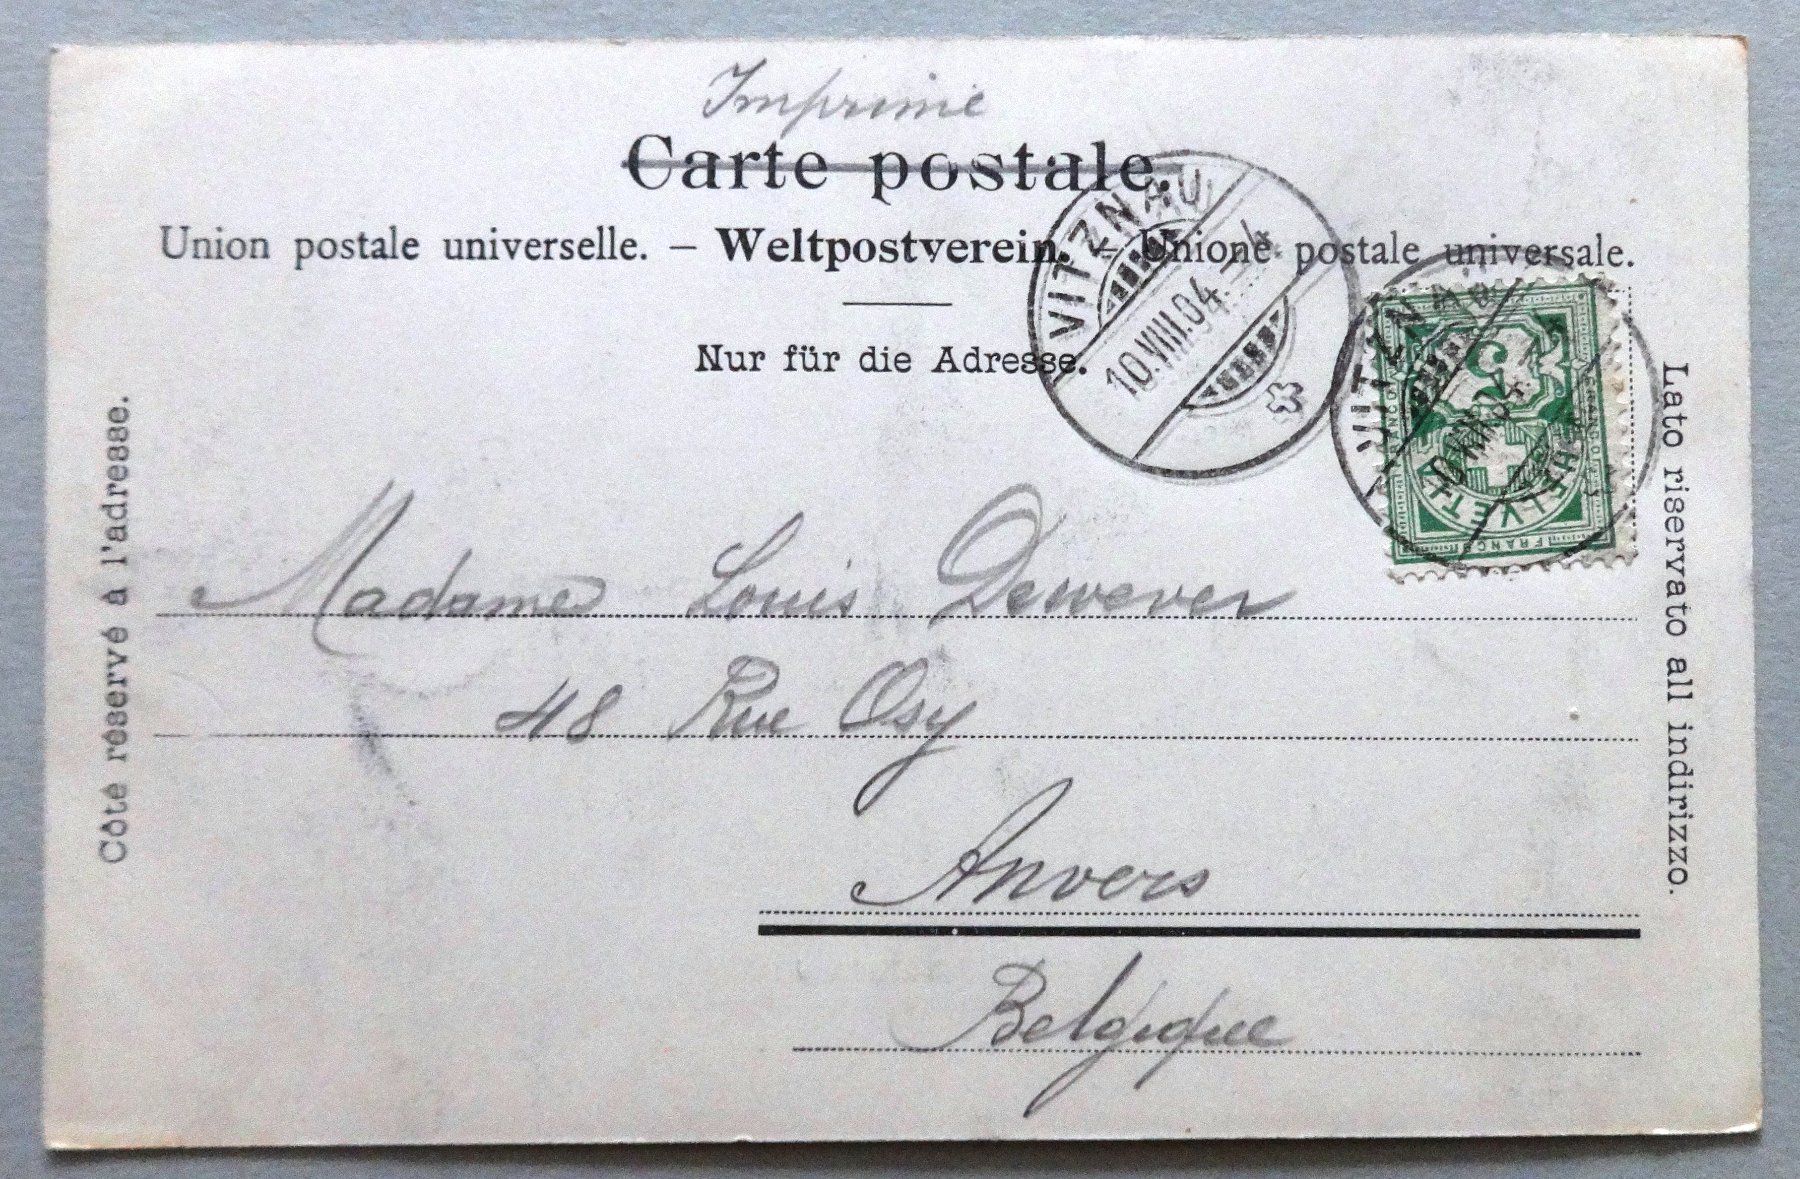 Imprimé
Carte postale.
Union postale universelle. – Weltpostverein. – Unione postale universale.
Nur für die Adresse.
VITZNAU
10.VIII.04.–4
VITZNAU
10.VIII.04
5
HELVETIA
FRANCO
FRANCO
FRANCO
Côté réservé à l'adresse.
Lato riservato all indirizzo.
Madame Louis Dewever
48 Rue Osy
Anvers
Belgique